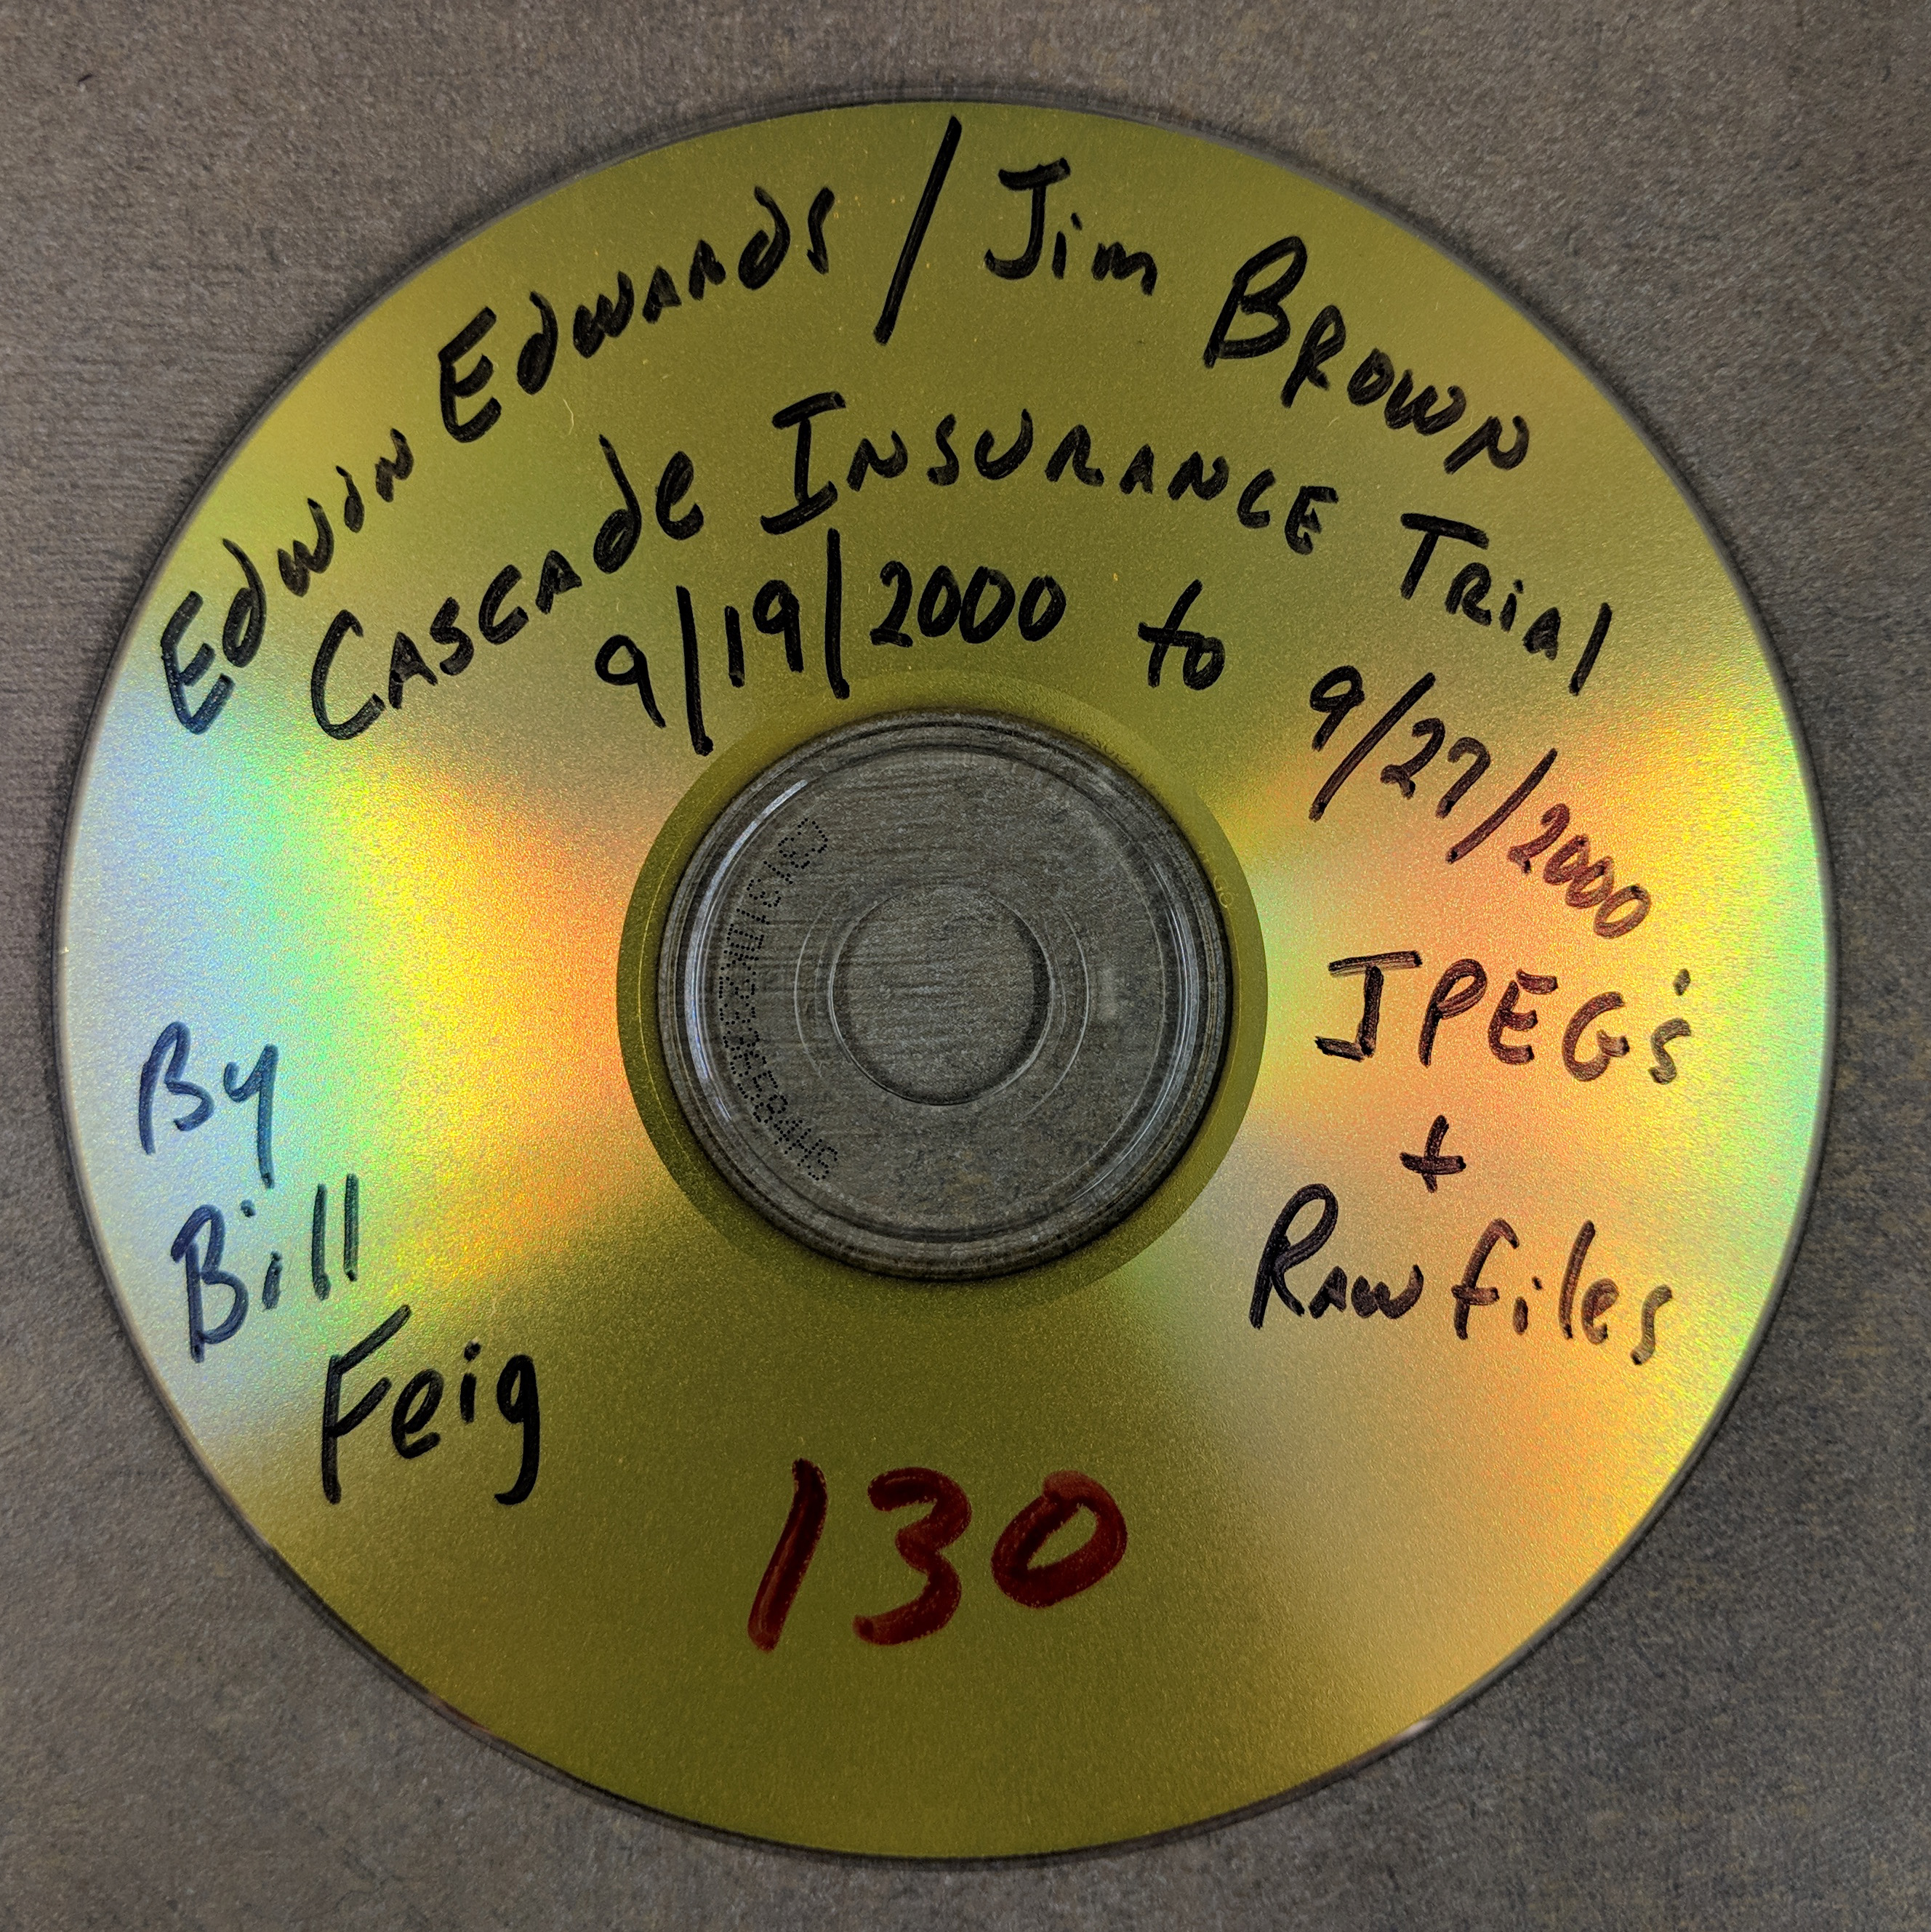 Edwin Edwards / Jim Brown
Cascade Insurance Trial
9/19/2000 to 9/27/2000
JPEG's
+
Raw files
By
Bill
Feig
130